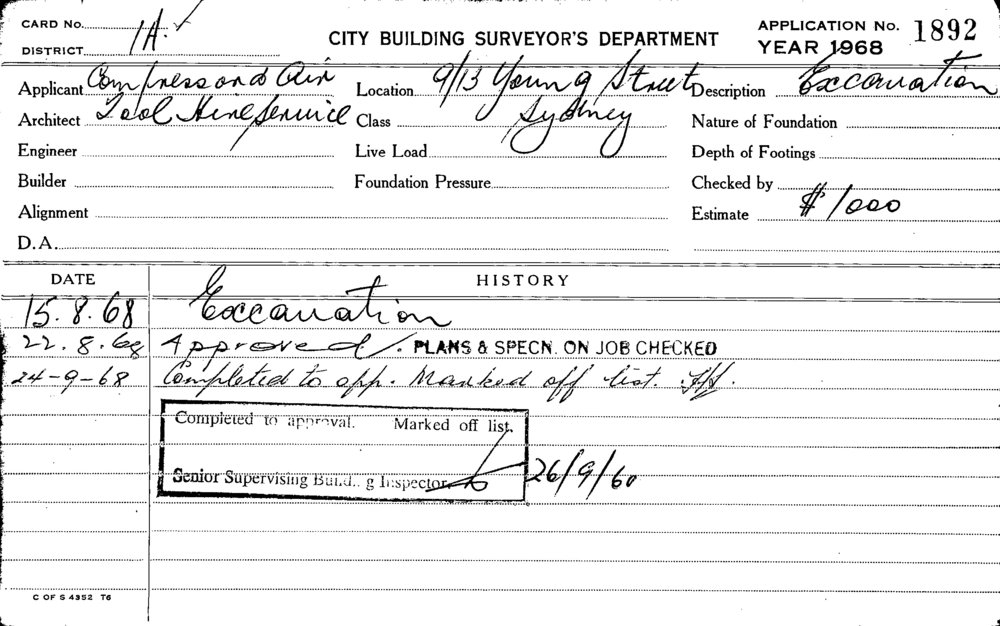 CARD No.
DISTRICT 1A.
CITY BUILDING SURVEYOR'S DEPARTMENT
APPLICATION No. 1892
YEAR 1968
Applicant Compressand Air
Location 9/13 Young Street
Description Excavation
Architect Tool Hire Service
Class Sydney
Nature of Foundation
Engineer
Live Load
Depth of Footings
Builder
Foundation Pressure
Checked by
Alignment
Estimate $1000
D.A.
DATE HISTORY
15.8.68 Excavation
22.8.68 Approved. PLANS & SPECN. ON JOB CHECKED
24-9-68 Completed to app. Marked off list.
Completed to approval. Marked off list.
Senior Supervising Build.. g Inspector 26/9/60
C OF S 4352 T6